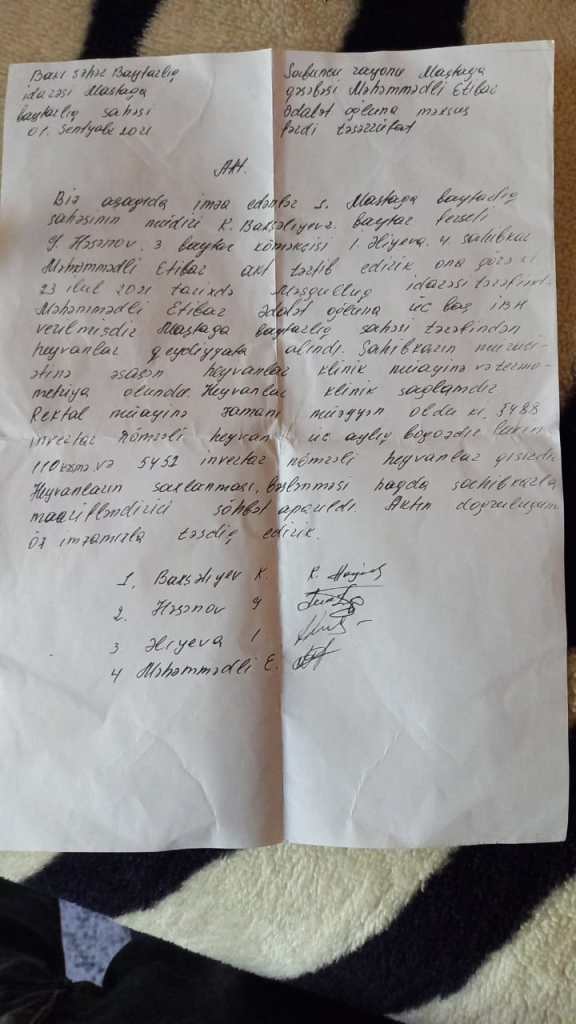 Bakı şəhər Baytarlıq
idarəsi Maştağa
baytarlıq sahəsi
01. Sentyabr 2021
Sabunçu rayonu Maştağa
qəsəbəsi Məhəmmədli Etibar
Ədalət oğluna məxsus
fərdi təsərrüfat
Akt.
Biz aşağıda imza edənlər 1. Maştağa baytarlıq
sahəsinin müdiri K. Baxşəliyev 2. baytar ferşeli
Y. Həsənov. 3 baytar köməkçisi İ. Əliyeva. 4 sahibkar
Məhəmmədli Etibar akt tərtib edirik ona görə ki
23 iyul 2021 tarixdə Məşğulluq idarəsi tərəfindən
Məhəmmədli Etibar Ədalət oğluna üç baş İBH
verilmişdir Maştağa baytarlıq sahəsi tərəfindən
heyvanlar qeydiyyata alındı. Sahibkarın müraci-
ətinə əsasən heyvanlar klinik müayinə və termo-
metriya olundu. Heyvanlar klinik sağlamdır
Rektal müayinə zamanı müəyyən oldu ki, 5488
inventar nömrəli heyvan üç aylıq boğazdır lakin
və 5452 inventar nömrəli heyvanlar qısırdır
Heyvanların saxlanması, bəslənməsi haqda sahibkarla
maarifləndirici söhbət aparıldı. Aktın doğruluğunu
öz imzamızla təsdiq edirik.
1. Baxşəliyev K. K.
2. Həsənov Y
3 Əliyeva İ
4 Məhəmmədli E.